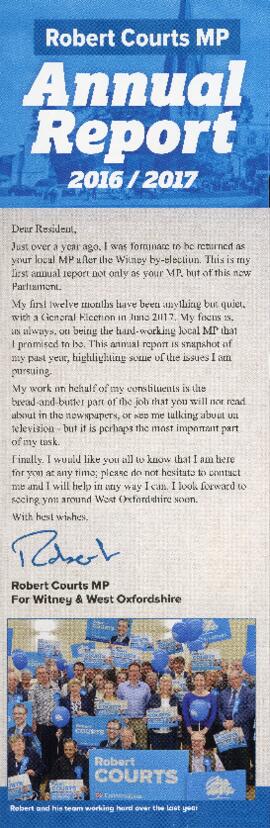 Robert Courts MP
Annual
Report
2016 / 2017
Dear Resident,
Just over a year ago, I was fortunate to be returned as
your local MP after the Witney by-election. This is my
first annual report not only as your MP, but of this new
Parliament.
My first twelve months have been anything but quiet,
with a General Election in June 2017. My focus is,
as always, on being the hard-working local MP that
I promised to be. This annual report is snapshot of
my past year, highlighting some of the issues I am
pursuing.
My work on behalf of my constituents is the
bread-and-butter part of the job that you will not read
about in the newspapers, or see me talking about on
television - but it is perhaps the most important part
of my task.
Finally, I would like you all to know that I am here
for you at any time; please do not hesitate to contact
me and I will help in any way I can. I look forward to
seeing you around West Oxfordshire soon.
With best wishes,
Robert
Robert Courts MP
For Witney & West Oxfordshire
Robert
COURTS
Robert and his team working hard over the last year